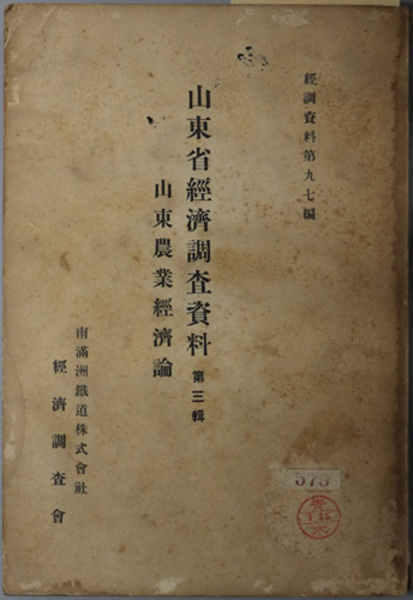 經調資料第九七編
山東省經濟調查資料 第三輯
山東農業經濟論
南滿洲鐵道株式會社
經濟調査會
575